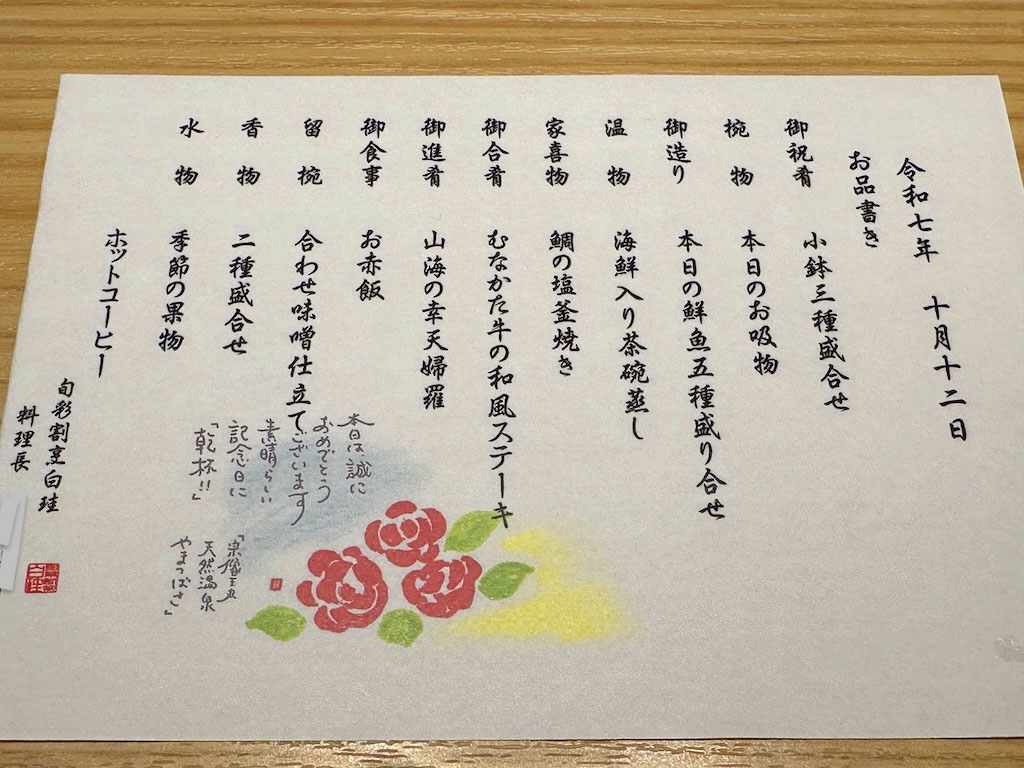 令和七年　十月十二日
お品書き
御祝肴　小鉢三種盛合せ
椀物　本日のお吸物
御造り　本日の鮮魚五種盛り合せ
温物　海鮮入り茶碗蒸し
家喜物　鯛の塩釜焼き
御合肴　むなかた牛の和風ステーキ
御進肴　山海の幸天婦羅
御食事　お赤飯
留椀　合わせ味噌仕立て
香物　二種盛合せ
水物　季節の果物
ホットコーヒー
旬彩割烹白珪
料理長
本日は、誠に
おめでとう
ございます
素晴らしい
記念日に
「乾杯!!」
「宗像王丸
天然温泉
やまつばさ」